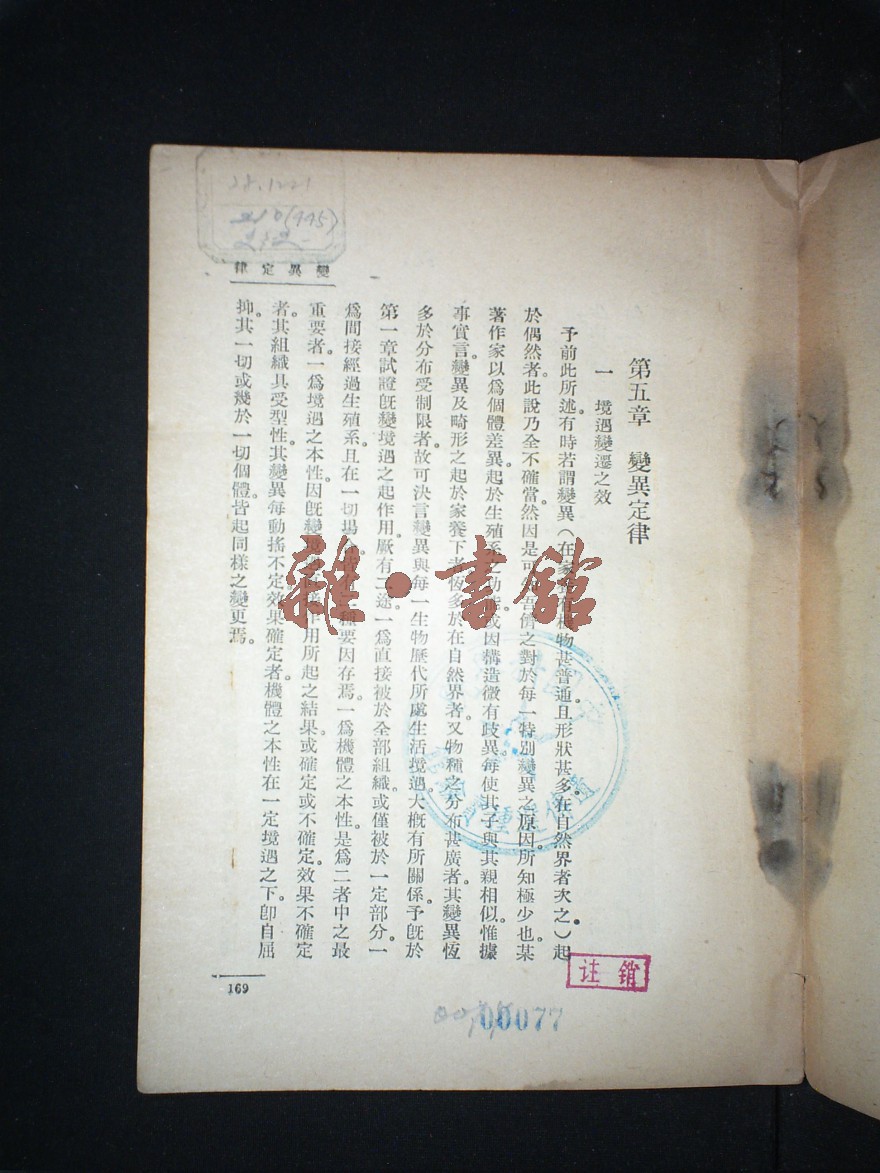 第五章　變異定律
一　境遇變遷之效
予前此所述。有時若謂變異（在家　　植物甚普通且形狀甚多。在自然界者次之。）起
於偶然者。此說乃全不確當。然因是可　吾儕之對於每一特別變異之原因。所知極少也。某
著作家以爲個體差異起於生殖系之功　或因構造微有歧異。每使其子與其親相似。惟據
事實言。變異及畸形之起於家養下者。恆多於在自然界者。又物種之分布甚廣者。其變異恆
多於分布受制限者。故可決言變異與每一生物歷代所處生活境遇。大概有所關係。予旣於
第一章試證旣變境遇之起作用。厥有二途。一爲直接被於全部組織。或僅被於一定部分。一
爲間接經過生殖系。且在一切場　　種要因存焉。一爲機體之本性。是爲二者中之最
重要者。一爲境遇之本性。因旣變境　　作用所起之結果。或確定或不確定。效果不確定
者。其組織具受型性。其變異每動搖不定。效果確定者。機體之本性在一定境遇之下。卽自屈
抑。其一切或幾於一切個體。皆起同樣之變更焉。
變異定律
169
28.1221
雜·書館
註銷
00077